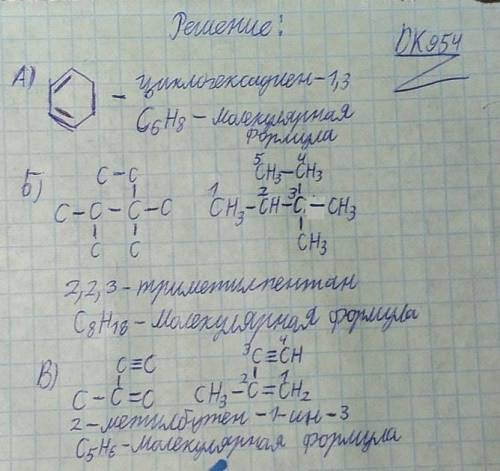 Решение:
DK954
А)
– циклогексадиен-1,3
C6H8 – молекулярная
формула
Б)
C – C
C – C – C – C
C C
5 4
CH3–CH3
1 2 3
CH3–CH–C–CH3
CH3
2,2,3-триметилпентан
C8H18 – молекулярная формула
В)
C≡C
C – C=C
3 4
C≡CH
2 1
CH3–C=CH2
2-метилбутен-1-ин-3
C5H6-молекулярная формула